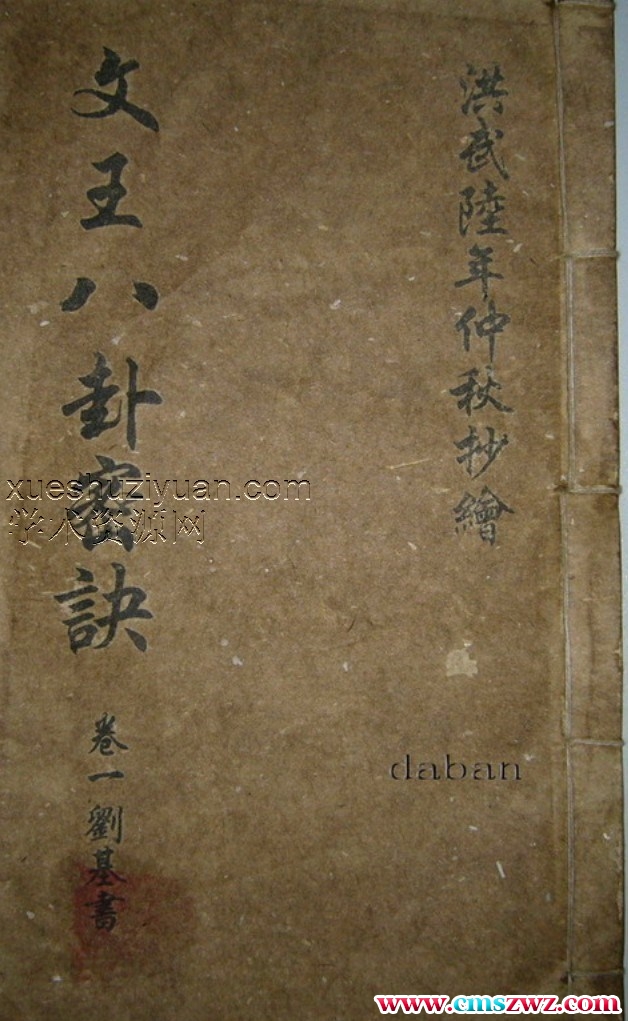 洪武陸年仲秋抄繪
文王八卦密訣
卷一劉基書
xueshuziyuan.com
学术资源网
daban
www.cmszwz.com